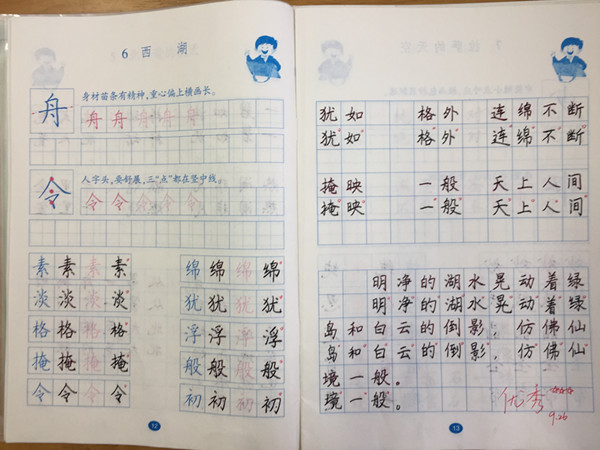 6 西 湖
舟
身材苗条有精神,重心偏上横画长。
舟 舟 舟 舟 舟 舟
令
人字头,要舒展,三“点”都在竖中线。
令 令 令 令 令 令
素 素 素 素
绵 绵 绵 绵
淡 淡 淡 淡
犹 犹 犹 犹
格 格 格 格
浮 浮 浮 浮
掩 掩 掩 掩
般 般 般 般
令 令 令 令
初 初 初 初
12
犹如 格外 连绵不断
犹如 格外 连绵不断
掩映 一般 天上人间
掩映 一般 天上人间
明净的湖水晃动着绿
明净的湖水晃动着绿
岛和白云的倒影,仿佛仙
岛和白云的倒影,仿佛仙
境一般。
境一般。
优秀
9.26
13